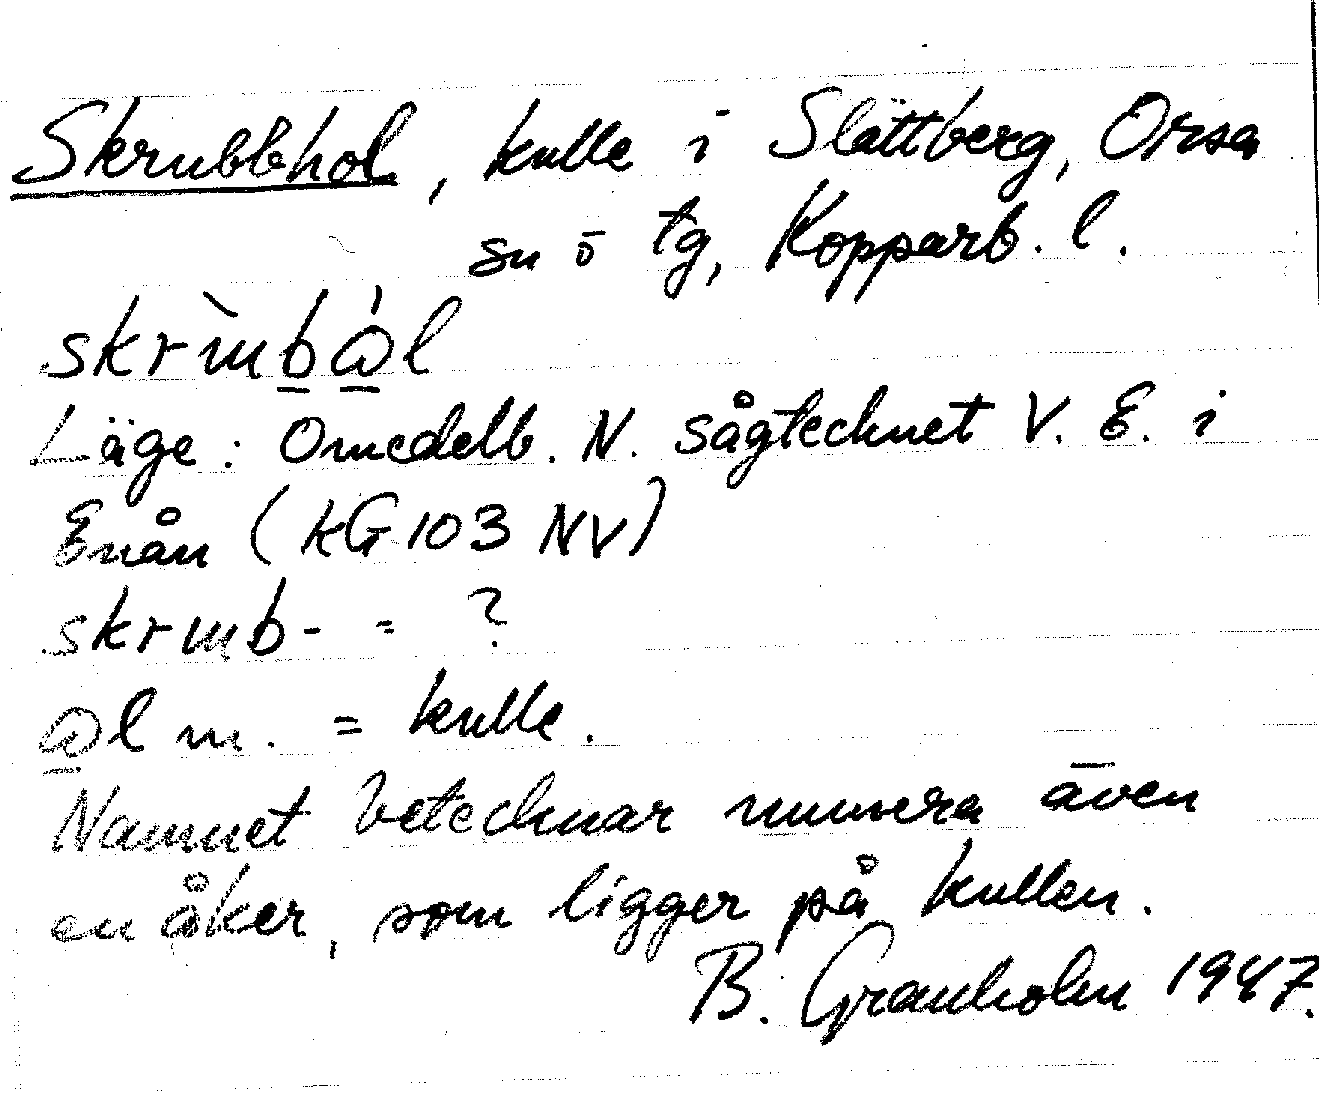 Skrubbhol, kulle i Slättberg, Orsa
sn ö tg, Kopparb. l.
Läge: Omedelb. N. sågtecknet V. E. i
Enån (kG 103 NV)
skrɯb- = ?
@l m. = kulle.
Namnet betecknar numera även
en åker, som ligger på kullen.
B. Granholm 1947.